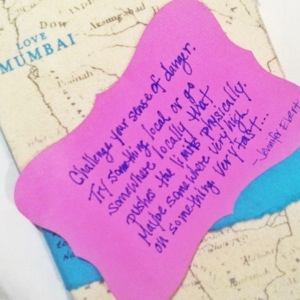 LOVE
MUMBAI
Challenge your sense of danger.
Try something local or go
somewhere locally that
pushes the limits physically.
Maybe somewhere very high
on something very fast...